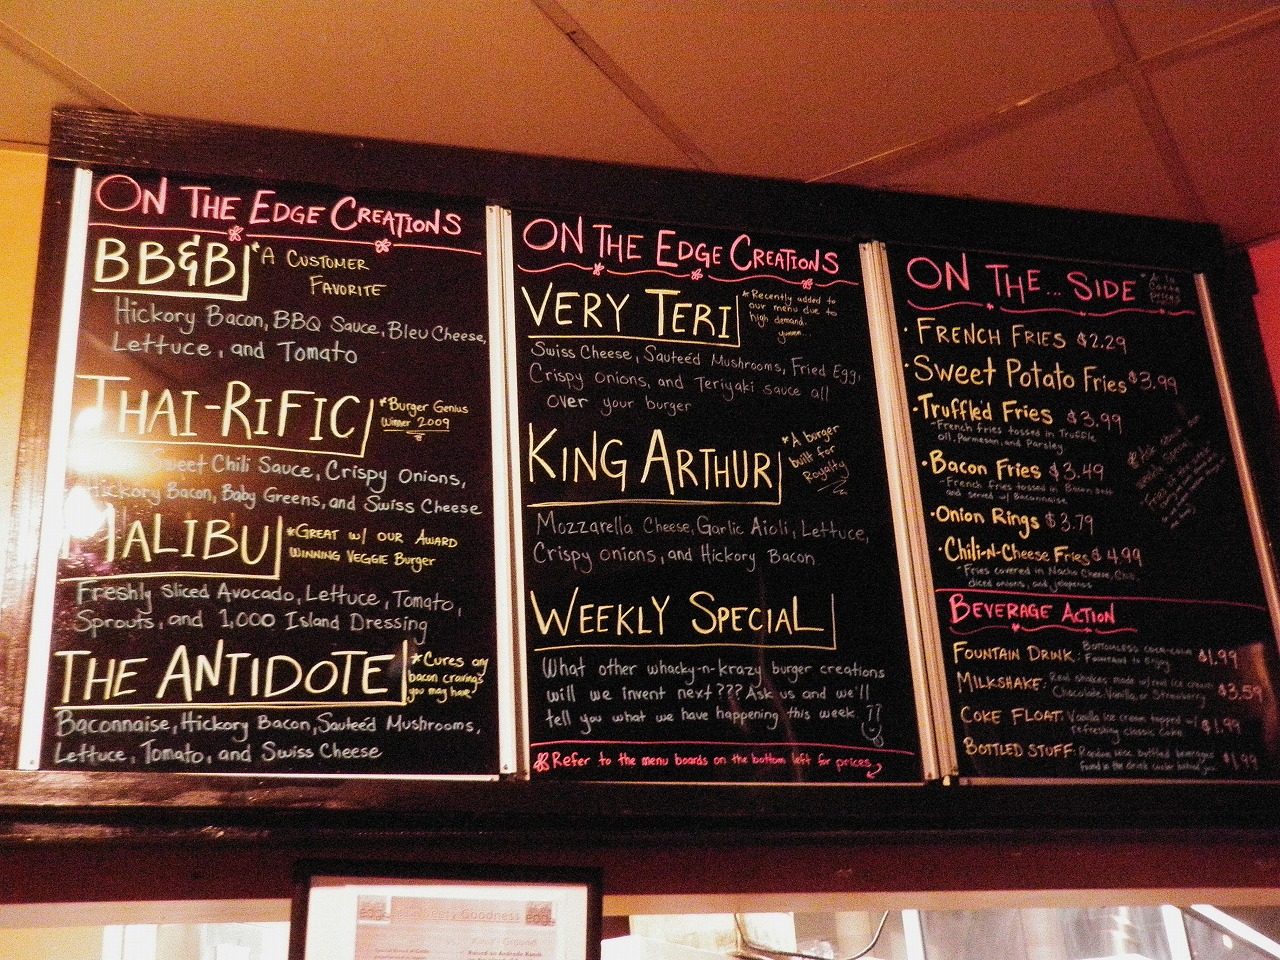 ON THE EDGE CREATIONS
BB&B
*A CUSTOMER
FAVORITE
Hickory Bacon, BBQ Sauce, Bleu Cheese,
Lettuce, and Tomato
THAI-RIFIC
*Burger Genius
Winner 2009
Sweet Chili Sauce, Crispy Onions,
Hickory Bacon, Baby Greens, and Swiss Cheese
MALIBU
*GREAT w/ OUR AWARD
WINNING VEGGIE Burger
Freshly sliced Avocado, Lettuce, Tomato,
Sprouts, and 1,000 Island Dressing
THE ANTIDOTE
*Cures any
bacon cravings
you may have
Baconnaise, Hickory Bacon, Sauteéd Mushrooms,
Lettuce, Tomato, and Swiss Cheese
ON THE EDGE CREATIONS
VERY TERI
*Recently added to
our menu due to
high demand.
yumm...
Swiss Cheese, Sauteéd Mushrooms, Fried Egg,
Crispy Onions, and Teriyaki sauce all
over your burger
KING ARTHUR
*A burger
built for
Royalty
Mozzarella Cheese, Garlic Aioli, Lettuce,
Crispy onions, and Hickory Bacon
WEEKLY SPECIAL
What other whacky-n-krazy burger creations
will we invent next??? Ask us and we'll
tell you what we have happening this week.
Refer to the menu boards on the bottom left for prices
ON THE... SIDE
• FRENCH FRIES $2.29
• Sweet Potato Fries $3.99
• Truffled Fries $3.99
-French fries tossed in Truffle
oil, Parmesan, and Parsley
• Bacon Fries $3.49
-French fries tossed in Bacon
and served w/ Baconnaise
• Onion Rings $3.79
• Chili-N-Cheese Fries $4.99
*Fries covered in Nacho Cheese, Chili,
diced onions, and jalapenos
BEVERAGE ACTION
FOUNTAIN DRINK: Bottomless coca-cola $1.99
Fountain to Enjoy
MILKSHAKE: Real shakes made w/ real ice cream $3.59
Chocolate, Vanilla, or Strawberry
COKE FLOAT: Vanilla ice cream topped w/ $1.99
refreshing classic Coke
BOTTLED STUFF: Random nice bottled beverages $1.99
found in the drink cooler behind you
Goodness